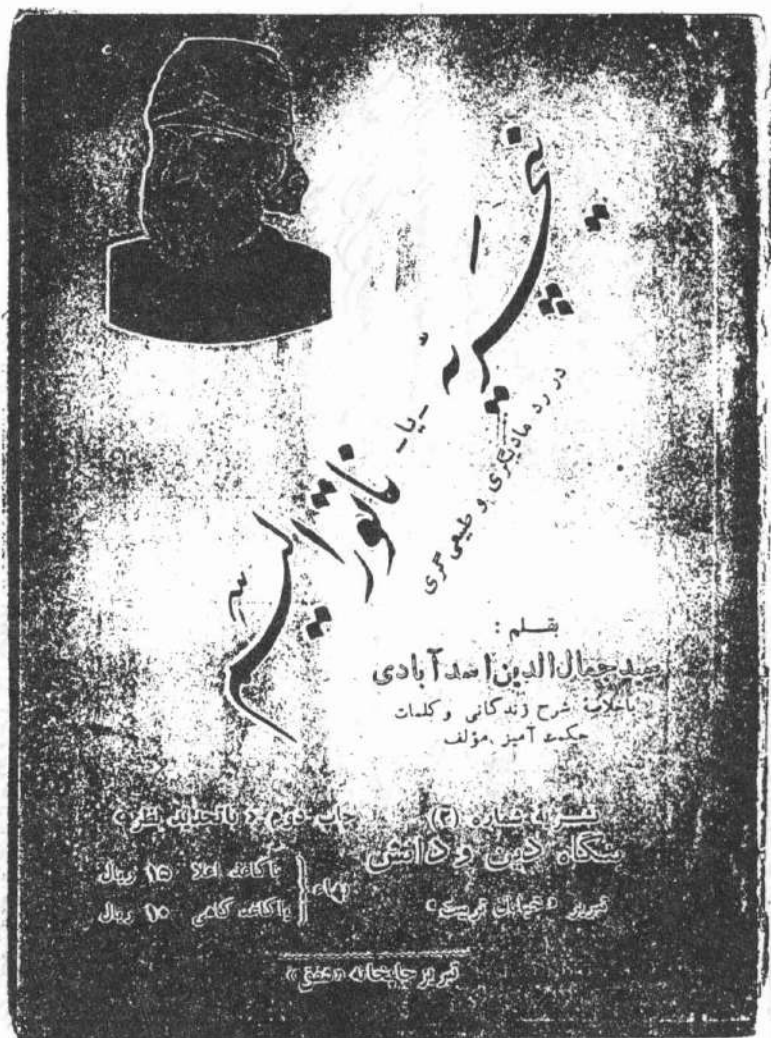 نیچریه
-یا-
ناتورالیسم
در رد مادیگری و طبیعی گری
بقلم :
سید جمال الدین اسد آبادی
باخلاصهٔ شرح زندگانی و کلمات
حکمت آمیز مؤلف
نشریهٔ شماره (۲) چاپ دوم «باتجدید نظر»
بنگاه دین و دانش
تبریز «خیابان تربیت»
بهاء
باکاغذ اعلا ۱۵ ریال
باکاغذ کاهی ۱۰ ریال
تبریز چاپخانه «شفق»